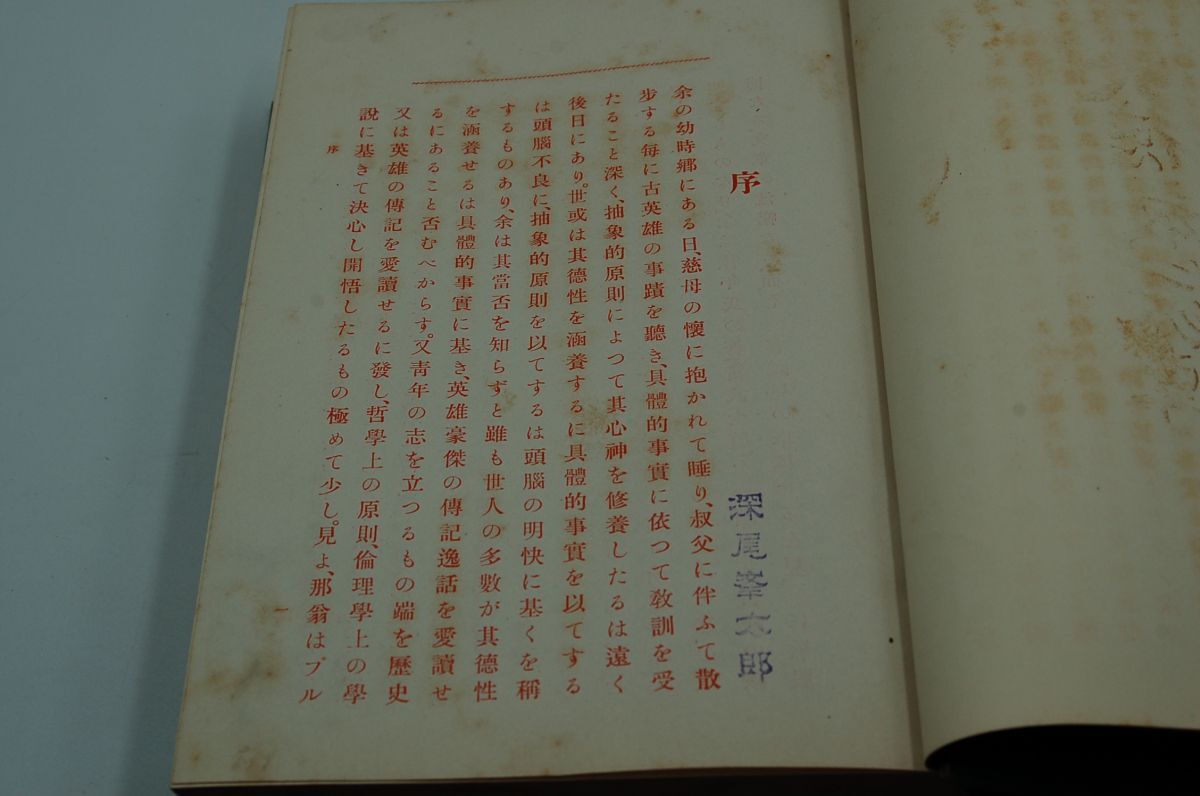 序
深尾峯太郎
余の幼時郷にある日、慈母の懷に抱かれて睡り、叔父に伴ふて散
步する每に古英雄の事蹟を聽き、具體的事實に依つて敎訓を受
たること深く、抽象的原則によつて其心神を修養したるは遠く
後日にあり。世或は其德性を涵養するに具體的事實を以てする
は頭腦不良に、抽象的原則を以てするは頭腦の明快に基くを稱
するものあり、余は其當否を知らずと雖も世人の多數が其德性
を涵養せるは具體的事實に基き、英雄豪傑の傳記逸話を愛讀せ
るにあること否むべからす。又靑年の志を立つるもの端を歷史
又は英雄の傳記を愛讀せるに發し、哲學上の原則、倫理學上の學
說に基きて決心し開悟したるもの極めて少し。見よ、那翁はプル
序
一